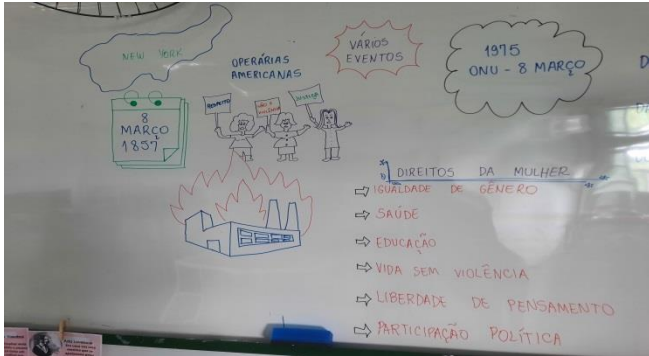 NEW YORK
OPERÁRIAS
AMERICANAS
VÁRIOS
EVENTOS
1975
ONU - 8 MARÇO
8
MARÇO
1857
RESPEITO
NÃO A
VIOLÊNCIA
JUSTIÇA
DIREITOS DA MULHER
⇨ IGUALDADE DE GÊNERO
⇨ SAÚDE
⇨ EDUCAÇÃO
⇨ VIDA SEM VIOLÊNCIA
⇨ LIBERDADE DE PENSAMENTO
⇨ PARTICIPAÇÃO POLÍTICA